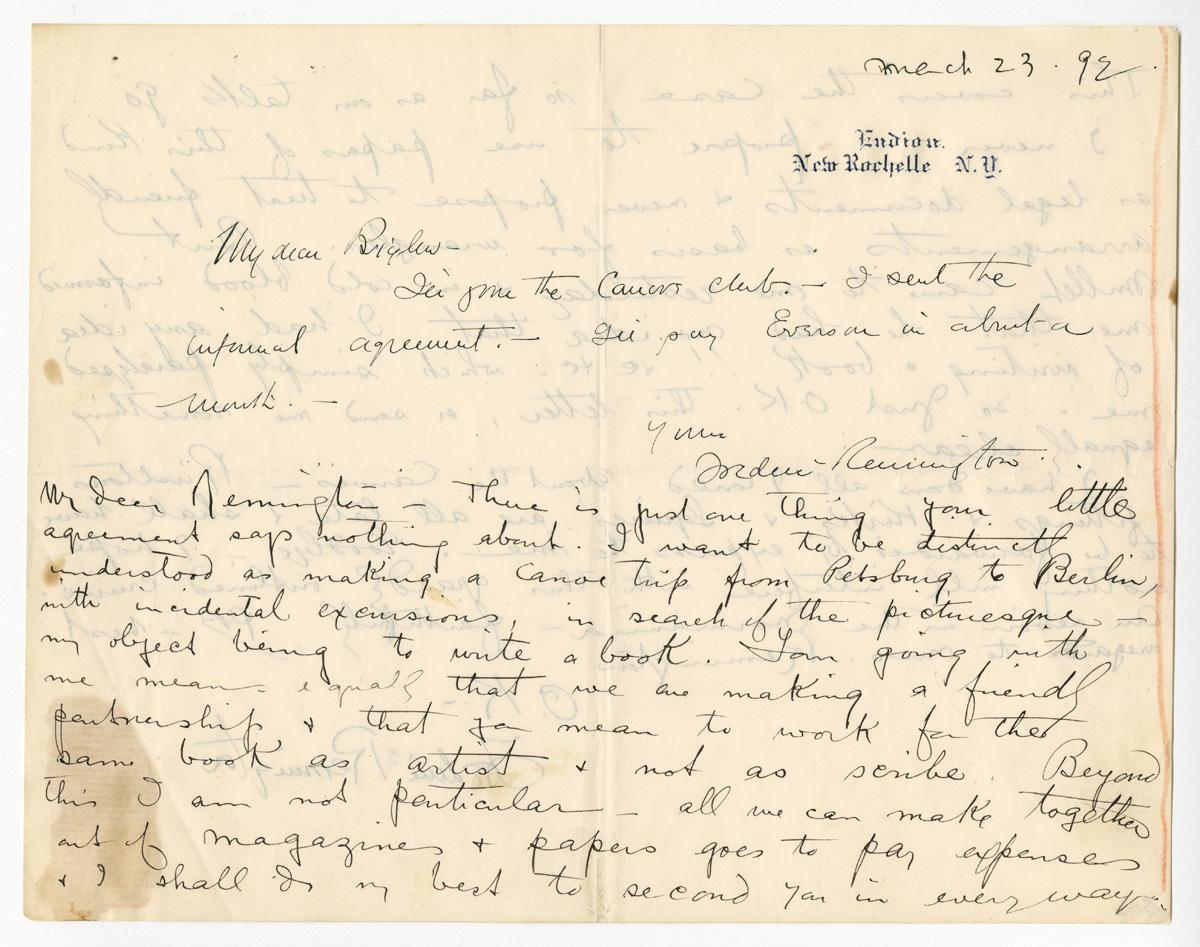 March 23. 92.
Endion.
New Rochelle N.Y.
My dear Bigelow—
I'll join the Canoe club.— I sent the
informal agreement.— I'll pay Everson in about a
month.—
Yours
Frederic Remington.
My dear Remington— There is just one thing your little
agreement says nothing about. I want to be distinctly
understood as making a canoe trip from Petsburg to Berlin,
with incidental excursions, in search of the picturesque—
my object being to write a book. Your going with
me means equally that we are making a friendly
partnership & that you mean to work for the
same book as artist & not as scribe. Beyond
this I am not particular— all we can make together
out of magazines & papers goes to pay expenses
& I shall do my best to second you in every way.